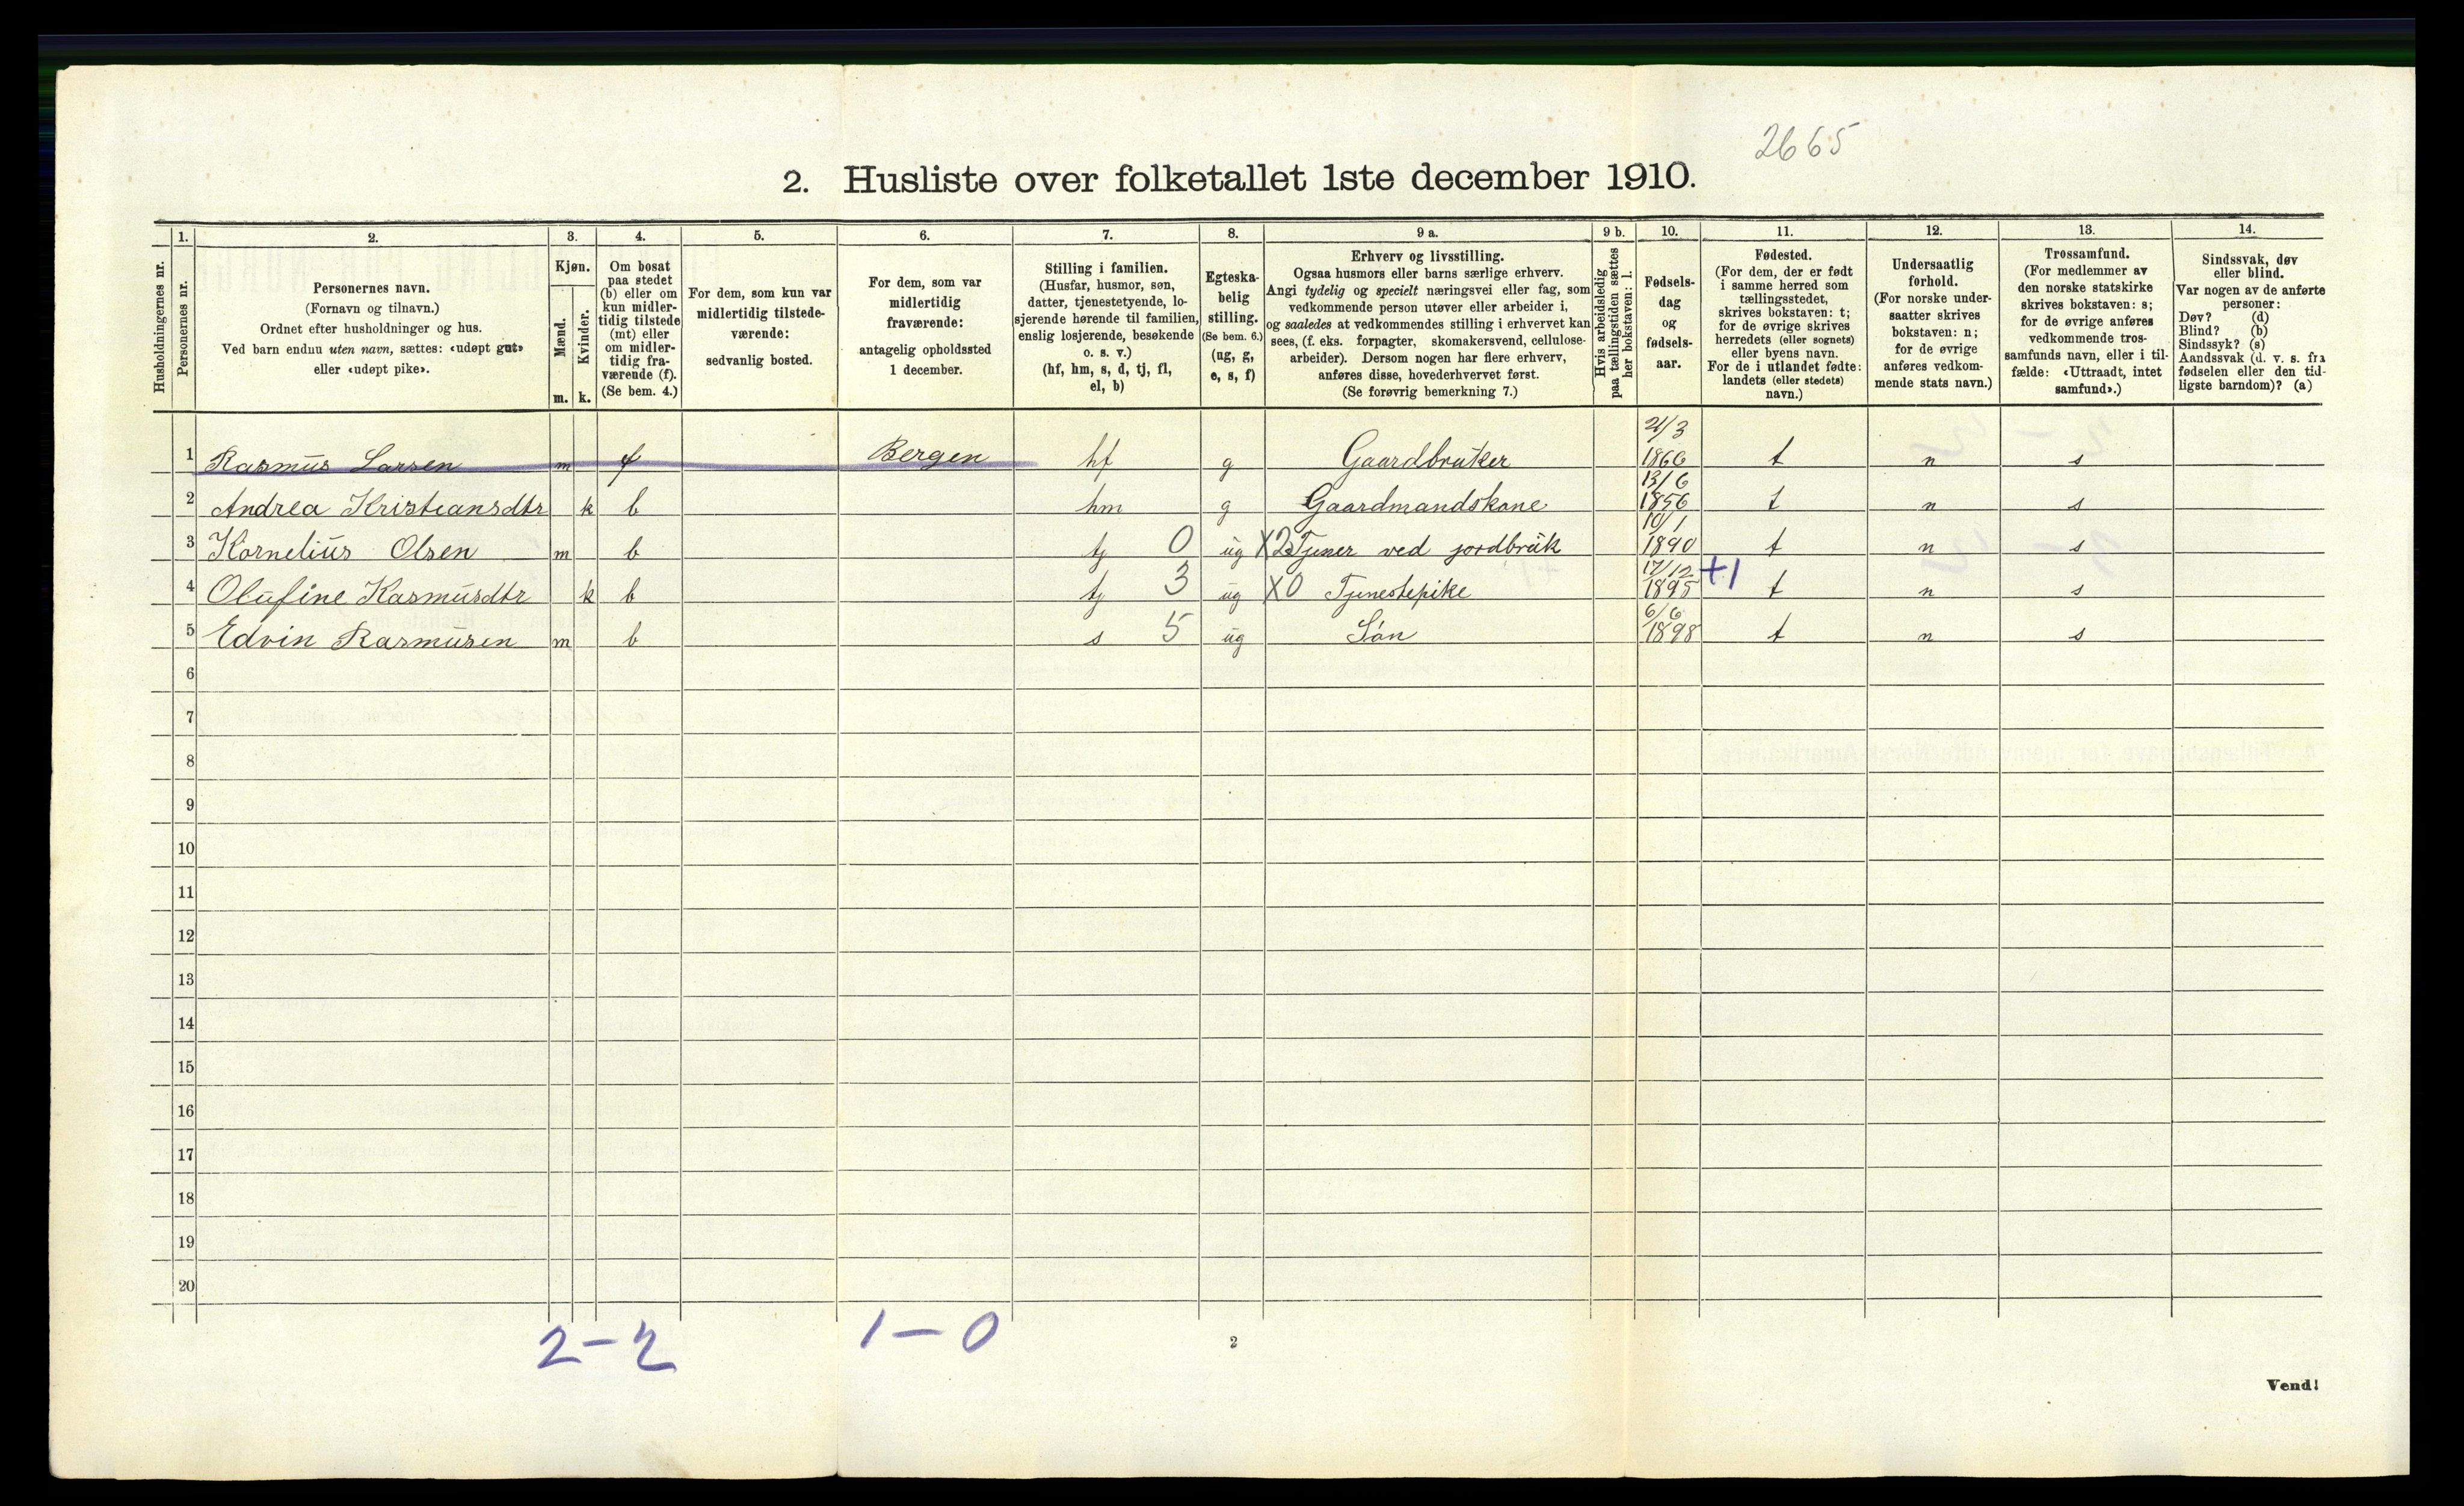 2665
2. Husliste over folketallet 1ste december 1910.
Husholdningernes nr.
1. Personernes nr.
2. Personernes navn.
(Fornavn og tilnavn.)
Ordnet efter husholdninger og hus.
Ved barn endnu uten navn, sættes: «udøpt gut»
eller «udøpt pike».
3. Kjøn.
Mænd. Kvinder.
m. k.
4. Om bosat
paa stedet
(b) eller om
kun midler-
tidig tilstede
(mt) eller
om midler-
tidig fra-
værende (f).
(Se bem. 4.)
5. For dem, som kun var
midlertidig tilstede-
værende:
sedvanlig bosted.
6. For dem, som var
midlertidig
fraværende:
antagelig opholdssted
1 december.
7. Stilling i familien.
(Husfar, husmor, søn,
datter, tjenestetyende, lo-
sjerende hørende til familien,
enslig losjerende, besøkende
o. s. v.)
(hf, hm, s, d, tj, fl,
el, b)
8. Egteska-
belig
stilling.
(Se bem. 6.)
(ug, g,
e, s, f)
9 a. Erhverv og livsstilling.
Ogsaa husmors eller barns særlige erhverv.
Angi tydelig og specielt næringsvei eller fag, som
vedkommende person utøver eller arbeider i,
og saaledes at vedkommendes stilling i erhvervet kan
sees, (f. eks. forpagter, skomakersvend, cellulose-
arbeider). Dersom nogen har flere erhverv,
anføres disse, hovederhvervet først.
(Se forøvrig bemerkning 7.)
9 b. Hvis arbeidsledig
paa tællingstiden sættes
her bokstaven: l.
10. Fødsels-
dag
og
fødsels-
aar.
11. Fødested.
(For dem, der er født
i samme herred som
tællingsstedet,
skrives bokstaven: t;
for de øvrige skrives
herredets (eller sognets)
eller byens navn.
For de i utlandet fødte:
landets (eller stedets)
navn.)
12. Undersaatlig
forhold.
(For norske under-
saatter skrives
bokstaven: n;
for de øvrige
anføres vedkom-
mende stats navn.)
13. Trossamfund.
(For medlemmer av
den norske statskirke
skrives bokstaven: s;
for de øvrige anføres
vedkommende tros-
samfunds navn, eller i til-
fælde: «Uttraadt, intet
samfund».)
14. Sindssvak, døv
eller blind.
Var nogen av de anførte
personer:
Døv? (d)
Blind? (b)
Sindssyk? (s)
Aandssvak (d. v. s. fra
fødselen eller den tid-
ligste barndom)? (a)
1 Rasmus Larsen m f Bergen hf g Gaardbruker 21/3 1866 t n s
2 Andrea Kristiansdtr k b hm g Gaardmandskone 13/6 1856 t n s
3 Kornelius Olsen m b tj 0 ug X2 Tjener ved jordbruk 10/1 1890 t n s
4 Olufine Rasmusdtr k b tj 3 ug X0 Tjenestepike 17/12 1895 +1 t n s
5 Edvin Rasmusen m b s 5 ug Søn 6/6 1898 t n s
6
7
8
9
10
11
12
13
14
15
16
17
18
19
20
2-2 1-0
2
Vend!